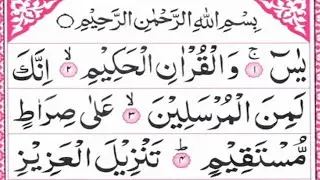 بِسْمِ اللهِ الرَّحْمٰنِ الرَّحِيْمِ ○
يٰسٓ ۚ ۱ وَالْقُرْاٰنِ الْحَكِيْمِ ۙ ۲ اِنَّكَ
لَمِنَ الْمُرْسَلِيْنَ ۙ ۳ عَلٰى صِرَاطٍ
مُّسْتَقِيْمٍ ؕ ۴ تَنْزِيْلَ الْعَزِيْزِ